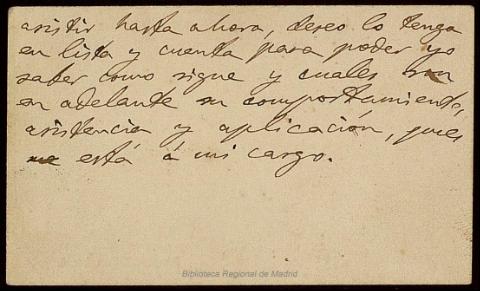 asistir hasta ahora, deseo lo tenga
en lista y cuenta para poder yo
saber como sigue y cuales son
en adelante su comportamiento,
asistencia y aplicación, pues
está á mi cargo.
Biblioteca Regional de Madrid